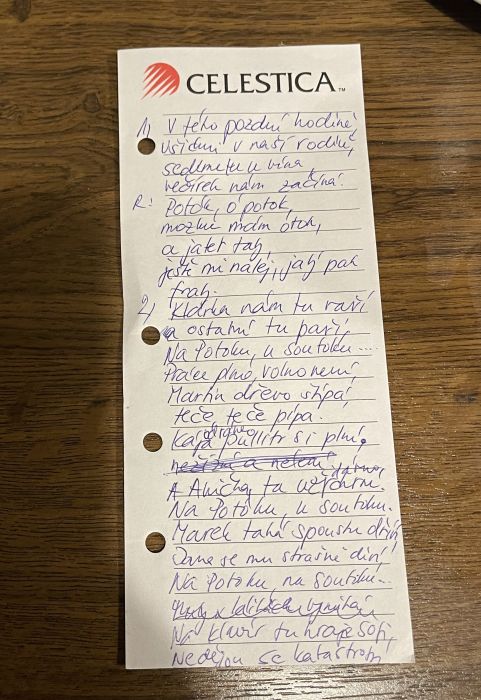 CELESTICA™
1, V této pozdní hodině
všichni v naší rodině,
sedíme tu u vína
večírek nám začíná.
R: Potok, ó potok,
mozku mám otok,
a jater taky,
ještě mi nalej, jaký pak
fraky.
2, Klárka nám tu vaří
a ostatní tu paří,
Na Potoku, u soutoku....
Práce plno, volno není,
Martin dřevo štípá,
teče, teče pípa.
Kája půllitr si plní.
A Anička tu
Na Potoku, u soutoku.
Marek tahá spoustu dříví,
se mu strašně diví,
Na Potoku, na soutoku...
Na klavír tu hraje Sofi,
Nedějou se katastrofy